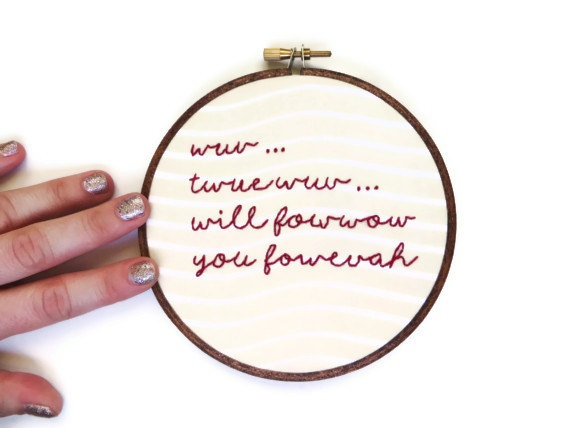 wuv ...
twue wuv ...
will fowwow
you fowevah